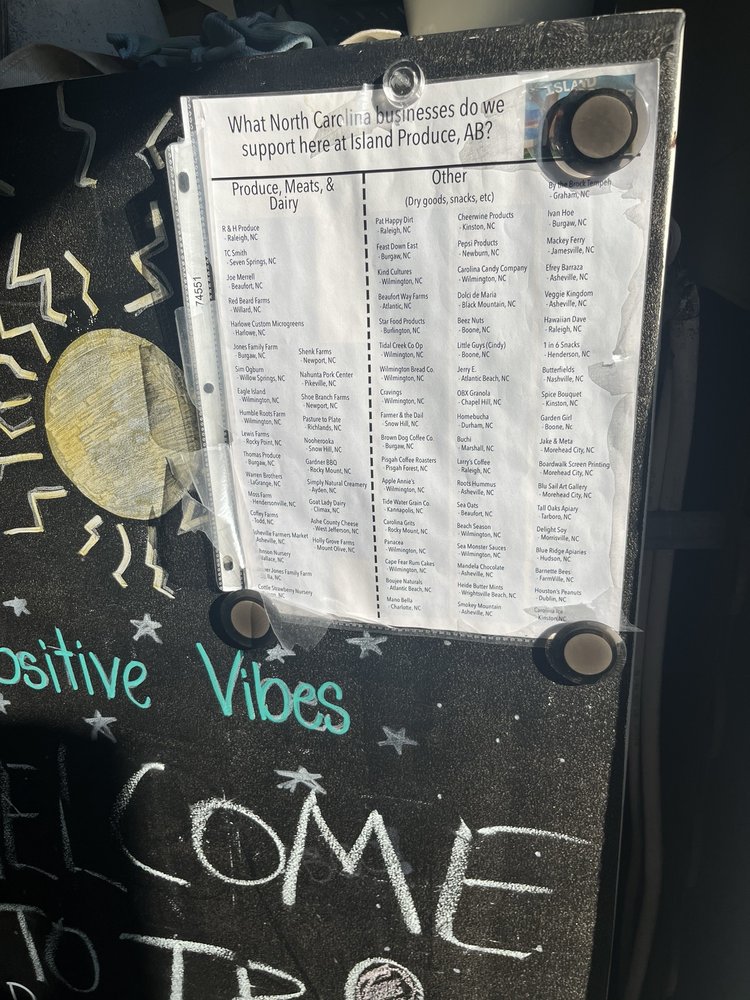 What North Carolina businesses do we
support here at Island Produce, AB?
ISLAND
Produce, Meats, &
Dairy
R & H Produce
- Raleigh, NC
TC Smith
- Seven Springs, NC
Joe Merrell
- Beaufort, NC
Red Beard Farms
- Willard, NC
Harlowe Custom Microgreens
- Harlowe, NC
Jones Family Farm
- Burgaw, NC
Sim Ogburn
- Willow Springs, NC
Eagle Island
- Wilmington, NC
Humble Roots Farm
- Wilmington, NC
Lewis Farms
- Rocky Point, NC
Thomas Produce
- Burgaw, NC
Warren Brothers
- LaGrange, NC
Moss Farm
- Hendersonville, NC
Coffey Farms
- Todd, NC
Asheville Farmers Market
Asheville, NC
Johnson Nursery
Wallace, NC
Jones Family Farm
NC
Cottle Strawberry Nursery
NC
Shenk Farms
- Newport, NC
Nahunta Pork Center
- Pikeville, NC
Shoe Branch Farms
- Newport, NC
Pasture to Plate
- Richlands, NC
Nooherooka
- Snow Hill, NC
Gardner BBQ
- Rocky Mount, NC
Simply Natural Creamery
- Ayden, NC
Goat Lady Dairy
- Climax, NC
Ashe County Cheese
- West Jefferson, NC
Holly Grove Farms
- Mount Olive, NC
Other
(Dry goods, snacks, etc)
Pat Happy Dirt
- Raleigh, NC
Feast Down East
- Burgaw, NC
Kind Cultures
- Wilmington, NC
Beaufort Way Farms
- Atlantic, NC
Star Food Products
- Burlington, NC
Tidal Creek Co Op
- Wilmington, NC
Wilmington Bread Co.
- Wilmington, NC
Cravings
- Wilmington, NC
Farmer & the Dail
- Snow Hill, NC
Brown Dog Coffee Co.
- Burgaw, NC
Pisgah Coffee Roasters
- Pisgah Forest, NC
Apple Annie's
- Wilmington, NC
Tide Water Grain Co.
- Kannapolis, NC
Carolina Grits
- Rocky Mount, NC
Panacea
- Wilmington, NC
Cape Fear Rum Cakes
- Wilmington, NC
Boujee Naturals
- Atlantic Beach, NC
Mano Bella
- Charlotte, NC
Cheerwine Products
- Kinston, NC
Pepsi Products
- Newburn, NC
Carolina Candy Company
- Wilmington, NC
Dolci de Maria
- Black Mountain, NC
Beez Nuts
- Boone, NC
Little Guys (Cindy)
- Boone, NC
Jerry E.
- Atlantic Beach, NC
OBX Granola
- Chapel Hill, NC
Homebucha
- Durham, NC
Buchi
- Marshall, NC
Larry's Coffee
- Raleigh, NC
Roots Hummus
- Asheville, NC
Sea Oats
- Beaufort, NC
Beach Season
- Wilmington, NC
Sea Monster Sauces
- Wilmington, NC
Mandela Chocolate
- Asheville, NC
Heide Butter Mints
- Wrightsville Beach, NC
Smokey Mountain
- Asheville, NC
By the Brock Tempeh
- Graham, NC
Ivan Hoe
- Burgaw, NC
Mackey Ferry
- Jamesville, NC
Efrey Barraza
- Asheville, NC
Veggie Kingdom
- Asheville, NC
Hawaiian Dave
- Raleigh, NC
1 in 6 Snacks
- Henderson, NC
Butterfields
- Nashville, NC
Spice Bouquet
- Kinston, NC
Garden Girl
- Boone, Nc
Jake & Meta
- Morehead City, NC
Boardwalk Screen Printing
- Morehead City, NC
Blu Sail Art Gallery
- Morehead City, NC
Tall Oaks Apiary
- Tarboro, NC
Delight Soy
- Morrisville, NC
Blue Ridge Apiaries
- Hudson, NC
Barnette Bees'
- FarmVille, NC
Houston's Peanuts
- Dublin, NC
Carolina Ice
- Kinston NC
74551
ositive Vibes
ELCOME
TO